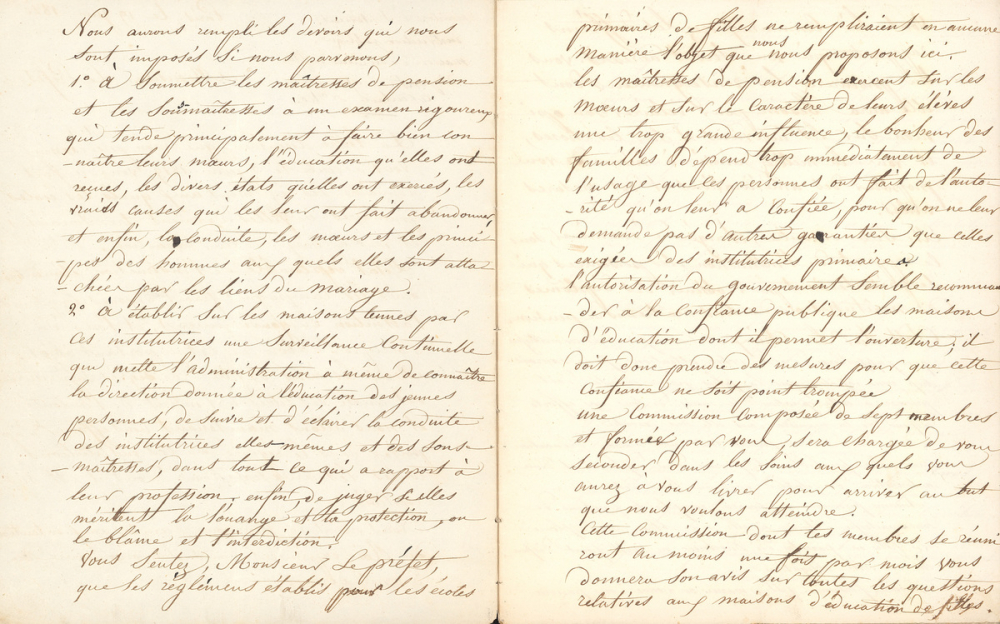 Nous aurons rempli les devoirs qui nous
sont imposés si nous parvenons,
1.° À Soumettre les maîtresses de pension
et les Soumaîtresses à un examen rigoureux
qui tende principalement à faire bien con
-naître leurs mœurs, l'éducation qu'elles ont
reçues, les divers états qu'elles ont exercés, les
vraies causes qui les leur ont fait abandonner
et enfin, la conduite, les mœurs et les princi-
-pes des hommes aux quels elles sont atta-
-chées par les liens du mariage.
2.° À établir sur les maisons tenues par
ces institutrices une Surveillance Continuelle
qui mette l'administration à même de connaître
la direction donnée à l'éducation des jeunes
personnes, de suivre et d'éclairer la conduite
des institutrices elles-mêmes et des Sous-
-maîtresses, dans tout ce qui a rapport à
leur profession, enfin, de juger si elles
méritent la louange et la protection, ou
le blâme et l'interdiction.
Vous Sentez, Monsieur Le préfet,
que les réglémens établis pour les écoles
primaires de filles ne rempliraient en aucune
manière l'objet que nous nous proposons ici.
les maîtresses de pension exercent sur les
Mœurs et sur le Caractère de leurs élèves
une trop grande influence, le bonheur des
familles dépend trop immédiatement de
l'usage que ces personnes ont fait de l'auto-
-rité qu'on leur a Confiée, pour qu'on ne leur
demande pas d'autres garanties que celles
exigées des institutrices primaires.
l'autorisation du gouvernement Semble recomman
-der à la Confiance publique les maisons
d'éducation dont il permet l'ouverture; il
doit donc prendre des mesures pour que cette
Confiance ne soit point trompée
une Commission Composée de Sept membres
et formée par vous, sera chargée de vous
seconder dans les soins aux quels vous
aurez à vous livrer pour arriver au but
que nous voulons atteindre.
Cette Commission dont les membres se réuni
ront au moins une fois par mois vous
donnera son avis sur toutes les questions
relatives aux maisons d'éducation de filles.